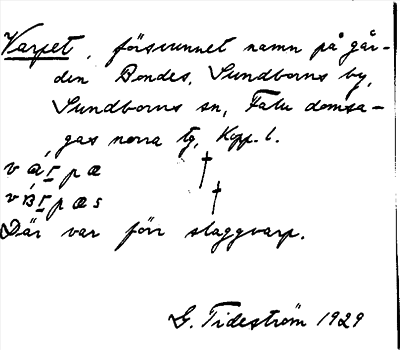 Varpet, försvunnet namn på går-
den Bondes, Sundborns by,
Sundborns sn, Falu domsa-
gas norra tg, Kopp. l.
v á r p æ †
v á r p æ s †
Där var förr slaggvarp.
G. Tideström 1929